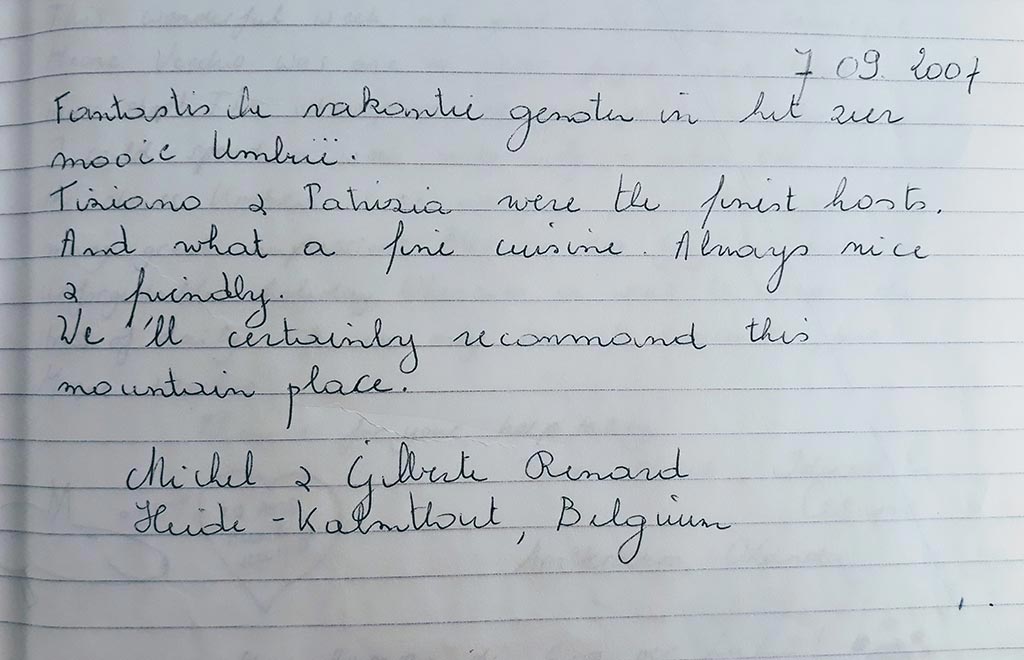 7 09. 2007
Fantastische vakantie genoten in het zeer
mooie Umbrië.
Tiziano & Patrizia were the finest hosts.
And what a fine cuisine. Always nice
& friendly.
We'll certainly recommand this
mountain place.
Michel & Gilberte Renard
Heide - Kalmthout, Belgium